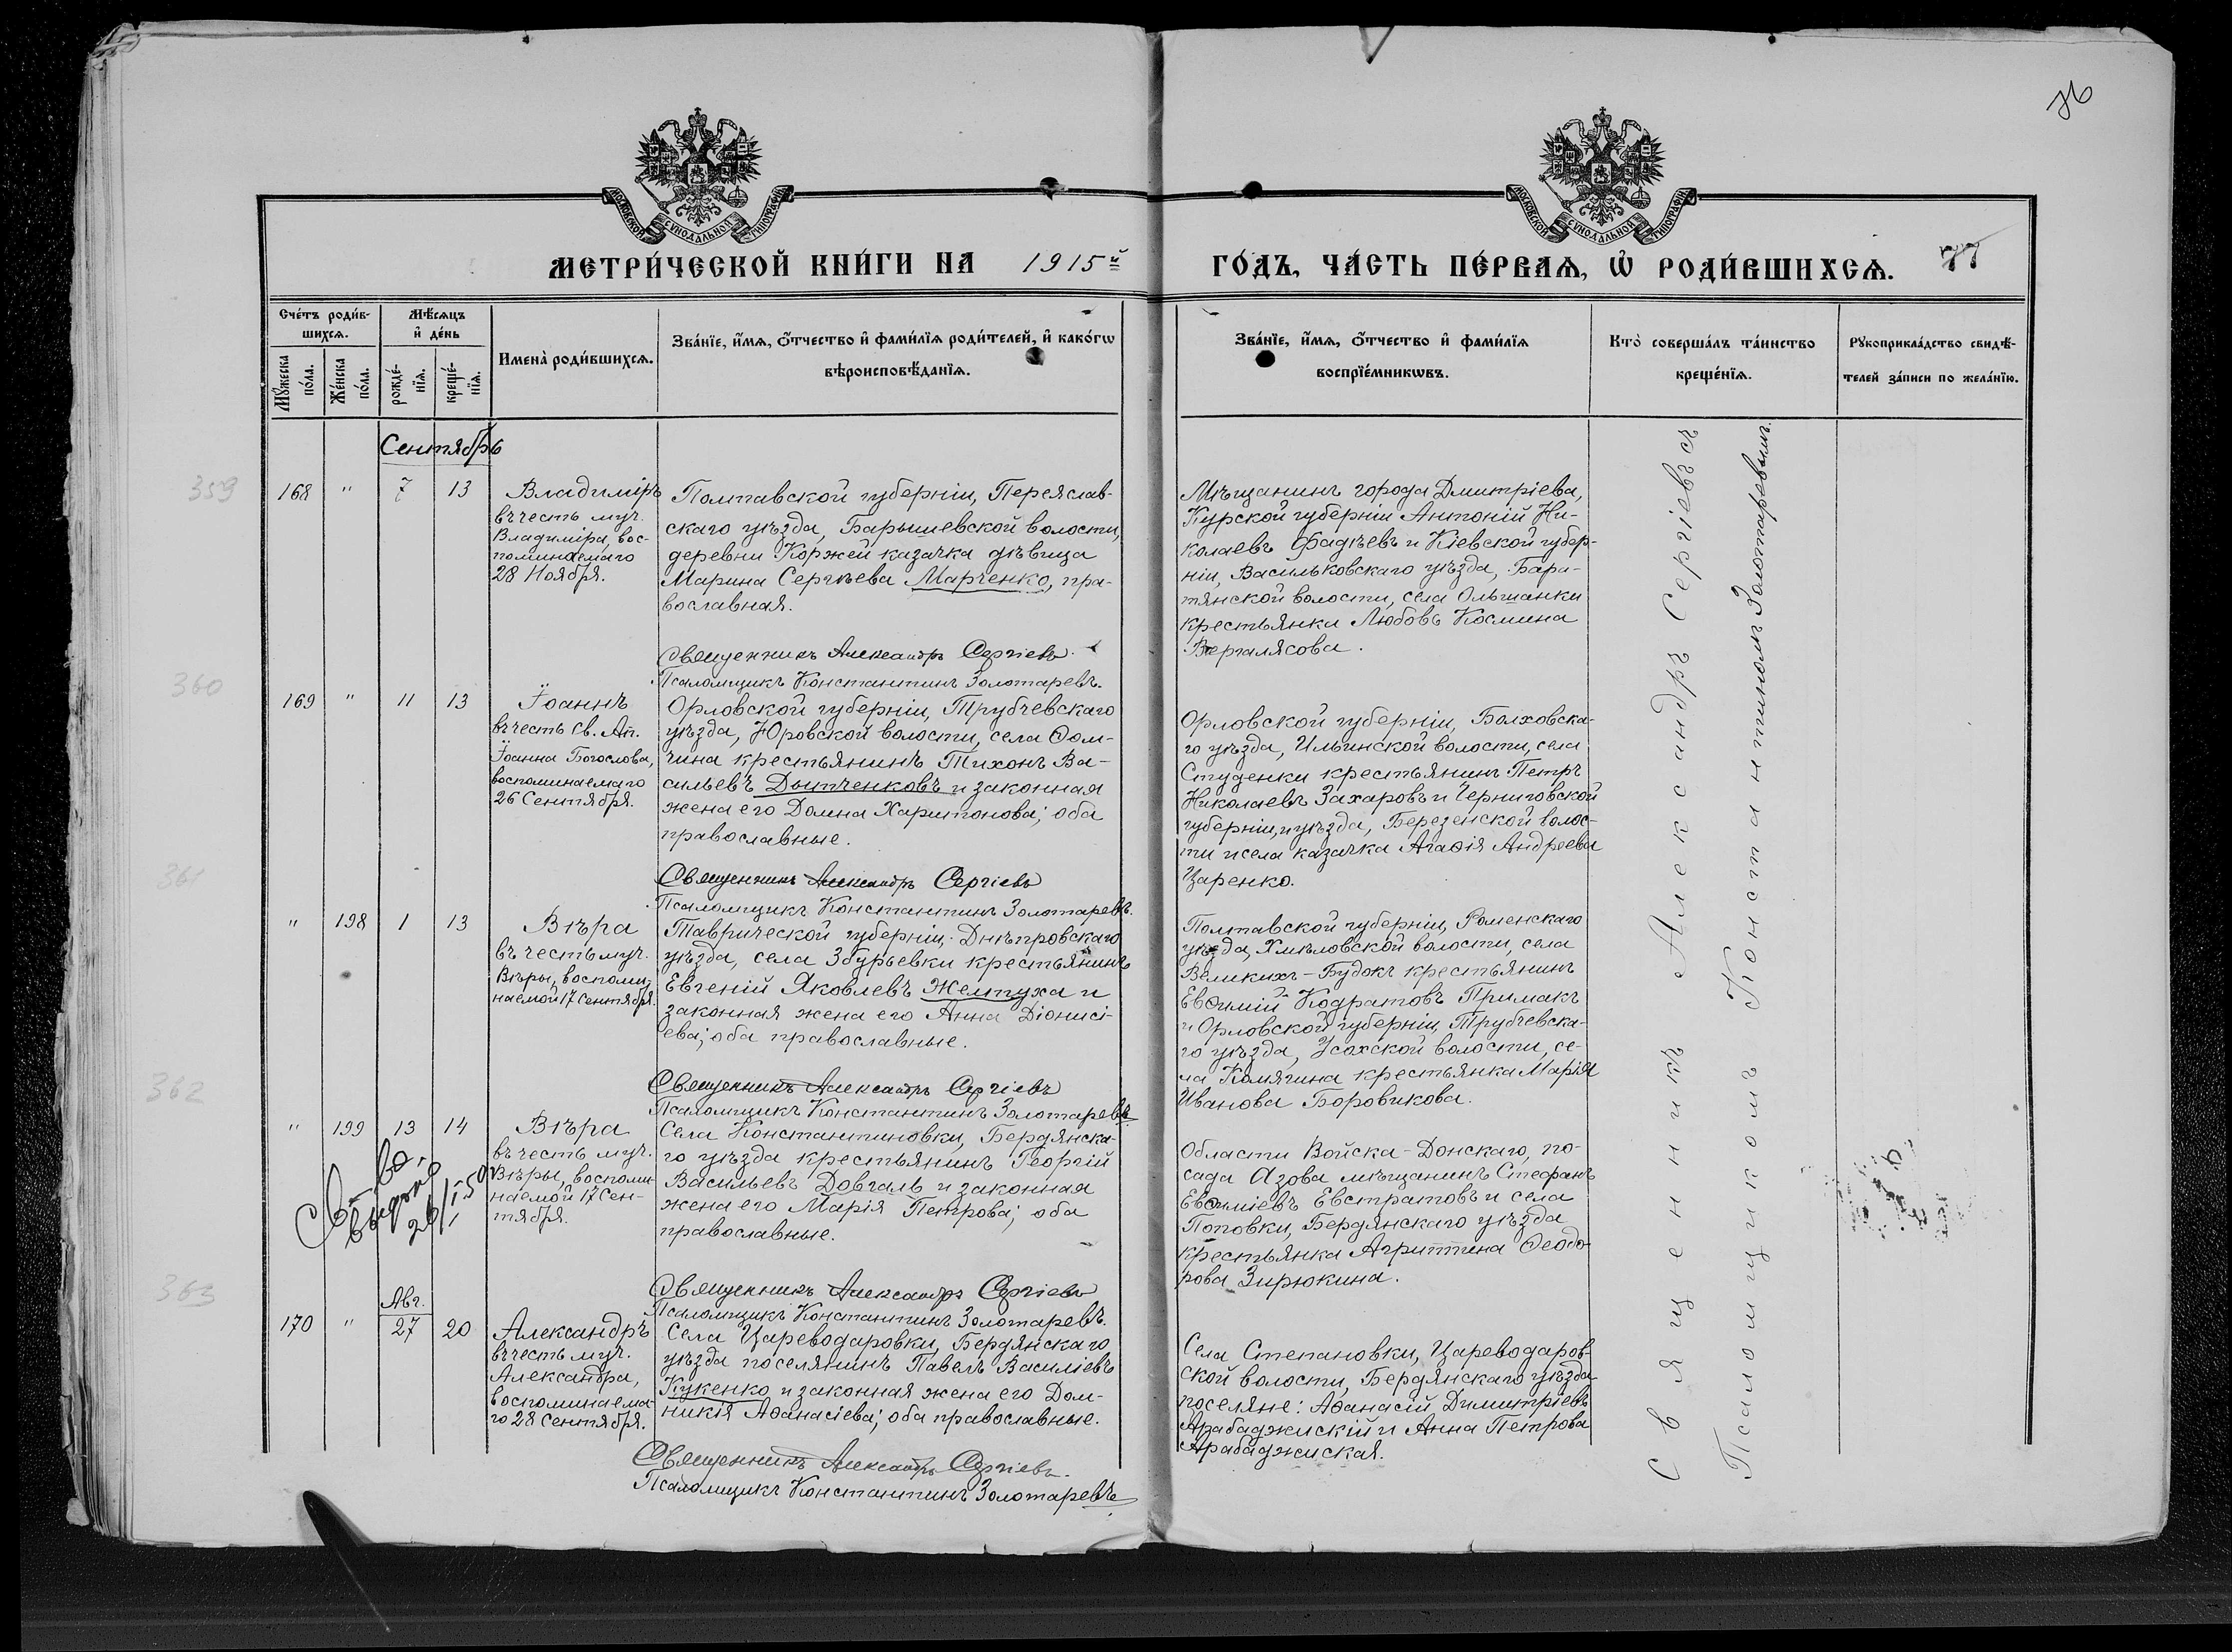 76
МЕТРИ́ЧЕСКОЙ КНИ́ГИ НА 1915й
ГО́ДЪ, ЧА́СТЬ ПЕ́РВАѦ, Ѽ РОДИ́ВШИХСѦ. 77
МОСКОВСКОЙ СѴНОДАЛЬНОЙ ТИПОГРАФІИ
МОСКОВСКОЙ СѴНОДАЛЬНОЙ ТИПОГРАФІИ
Сче́тъ роди́в-
шихсѧ.
Мꙋ́жеска по́ла.
Же́нска по́ла.
Мѣ́сѧцъ
и҆ де́нь
рожде́-
нїѧ.
креще́-
нїѧ.
Имена̀ роди́вшихсѧ.
Зва́нїе, и҆́мѧ, ѻ҆́тчество и҆ фами́лїѧ роди́телей, и҆ како́гѡ
вѣроисповѣ́данїѧ.
Зва́нїе, и҆́мѧ, ѻ҆́тчество и҆ фами́лїѧ
воспрїе́мникѡвъ.
Кто̀ соверша́лъ та́инство
креще́нїѧ.
Рꙋкоприкла́дство свидѣ́-
телей за́писи по жела́нїю.
Сентябрь
359
168 " 7 13
Владиміръ
въ честь муч.
Владиміра, вос-
поминаемаго
28 Ноября.
Полтавской губерніи, Переяслав-
скаго уѣзда, Барышевской волости,
деревни Коржей казачка дѣвица
Марина Сергѣева Марченко, пра-
вославная.
Священникъ Александръ Сергіевъ
Псаломщикъ Константинъ Золотаревъ.
Мѣщанинъ города Дмитріева,
Курской губерніи Антоній Ни-
колаевъ Фадѣевъ и Кіевской губер-
ніи, Васильковскаго уѣзда, Бара-
тянской волости, села Ольшанки
крестьянка Любовь Космина
Вергалясова.
360
169 " 11 13
Іоаннъ
въ честь Св. Ап.
Іоанна Богослова,
воспоминаемаго
26 Сентября.
Орловской губерніи, Трубчевскаго
уѣзда, Юровской волости, села Ѳом-
чина крестьянинъ Тихонъ Ва-
сильевъ Дытченковъ и законная
жена его Домна Харитонова; оба
православные.
Священникъ Александръ Сергіевъ
Псаломщикъ Константинъ Золотаревъ.
Орловской губерніи, Болховска-
го уѣзда, Ильинской волости, села
Студенки крестьянинъ Петръ
Николаевъ Захаровъ и Черниговской
губерніи, и уѣзда, Березенской волос-
ти и села казачка Агаѳія Андреева
Царенко.
361
" 198 1 13
Вѣра
въ честь муч.
Вѣры, воспоми-
наемой 17 Сентября.
Таврической губерніи, Днѣпровскаго
уѣзда, села Збурьевки крестьянинъ
Евгеній Яковлевъ Желтуха и
законная жена его Анна Діонисі-
ева; оба православные.
Священникъ Александръ Сергіевъ
Псаломщикъ Константинъ Золотаревъ.
Полтавской губерніи, Роменскаго
уѣзда, Хмѣловской волости, села
Великихъ-Будокъ крестьянинъ
Евѳимій Кодратовъ Примакъ
и Орловской губерніи, Трубчевска-
го уѣзда, Усохской волости, се-
ла Комягина крестьянка Марія
Иванова Боровикова.
362
" 199 13 14
Вѣра
въ честь муч.
Вѣры, воспоми-
наемой 17 Сен-
тября.
Св-во
выдано
26/I-50
Села Константиновки, Бердянска-
го уѣзда крестьянинъ Георгій
Васильевъ Довгаль и законная
жена его Марія Петрова; оба
православные.
Священникъ Александръ Сергіевъ
Псаломщикъ Константинъ Золотаревъ.
Области Войска-Донскаго, по-
сада Азова мѣщанинъ Стефанъ
Евѳиміевъ Евстратовъ и села
Поповки, Бердянскаго уѣзда
крестьянка Агриппина Ѳеодо-
рова Зирюкина.
363
Авг.
170 " 27 20
Александръ
въ честь муч.
Александра,
воспоминаема-
го 28 Сентября.
Села Цареводаровки, Бердянскаго
уѣзда поселянинъ Павелъ Василіевъ
Кукенко и законная жена его Дом-
никія Аѳанасіева; оба православные.
Священникъ Александръ Сергіевъ.
Псаломщикъ Константинъ Золотаревъ
Села Степановки, Цареводаров-
ской волости, Бердянскаго уѣзда
поселяне: Аѳанасій Димитріевъ
Арабаджискій и Анна Петрова
Арабаджиская.
Священникъ Александръ Сергіевъ съ
Псаломщикомъ Константиномъ Золотаревымъ.